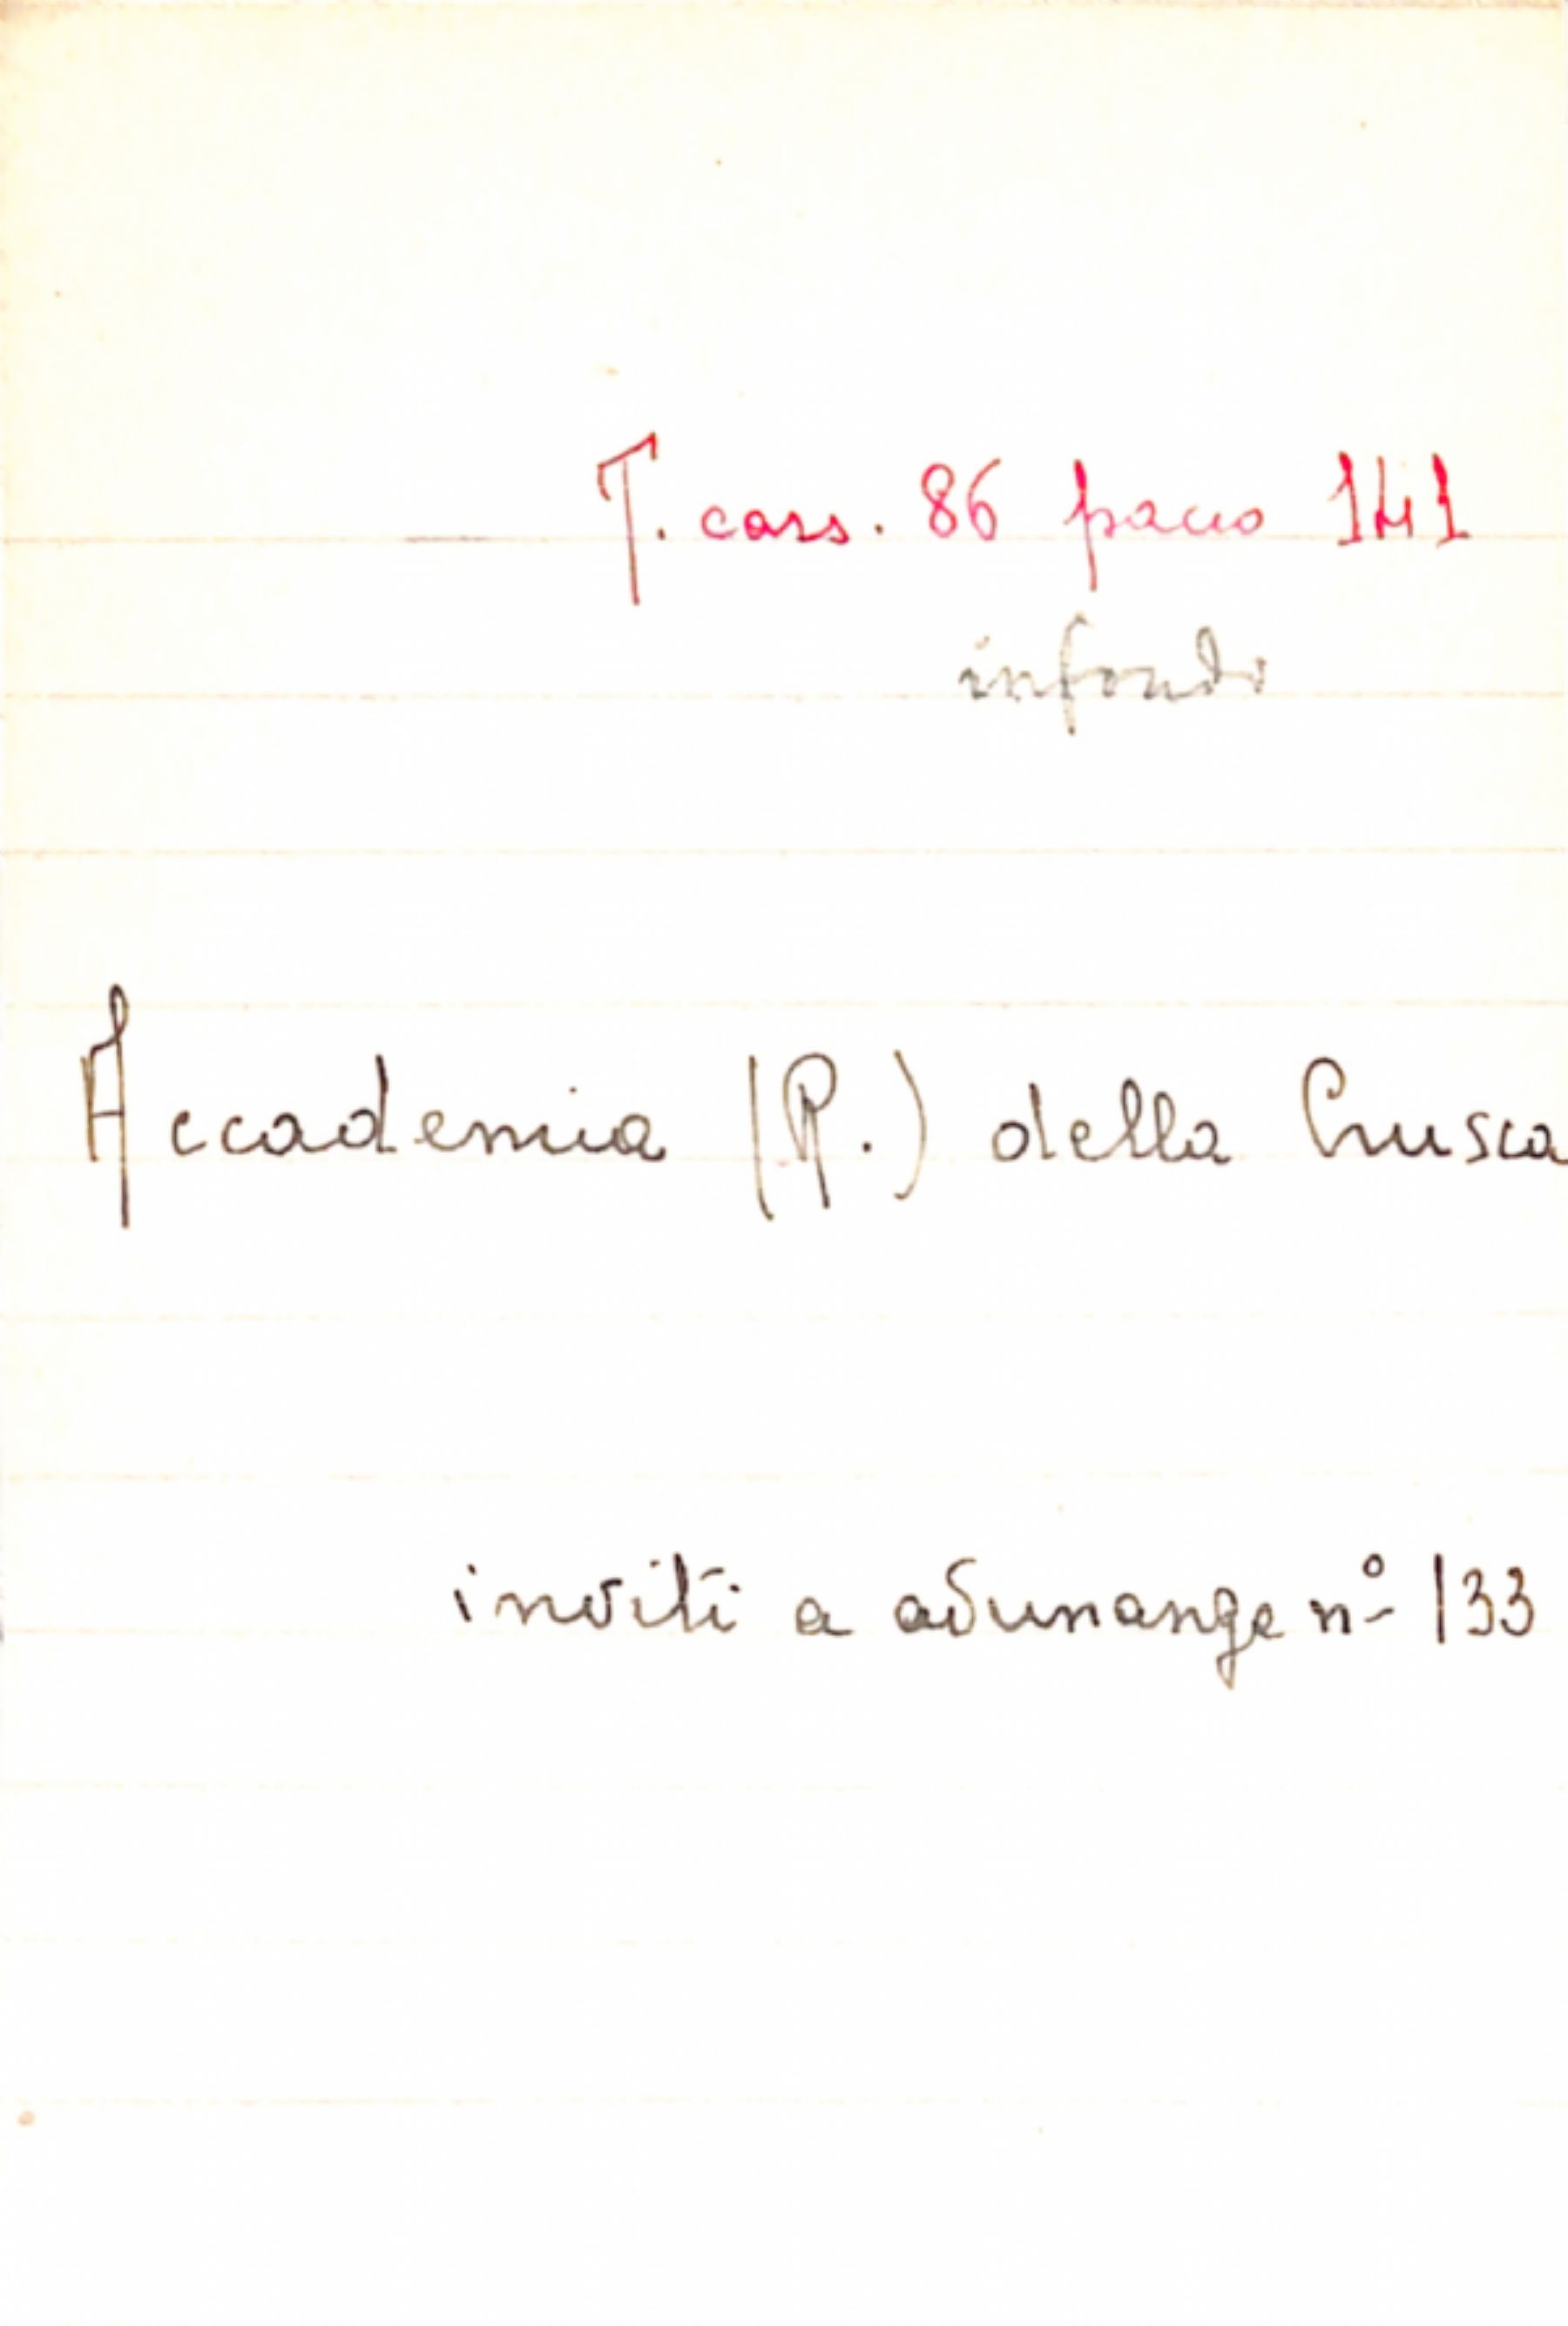 T. cass. 86 pacco 141
in fondo
Accademia (R.) della Crusca
inviti a adunanze nº 133